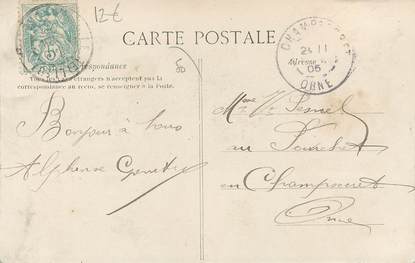 12€
CARTE POSTALE
Correspondance
Tous les étrangers n'acceptent pas la
correspondance au recto, se renseigner à la Poste.
Adresse
CHAMPSECRET
24 11
05
ORNE
Bonjour à tous
Alphonse
Mme Vve
au
en Champsecret
Orne